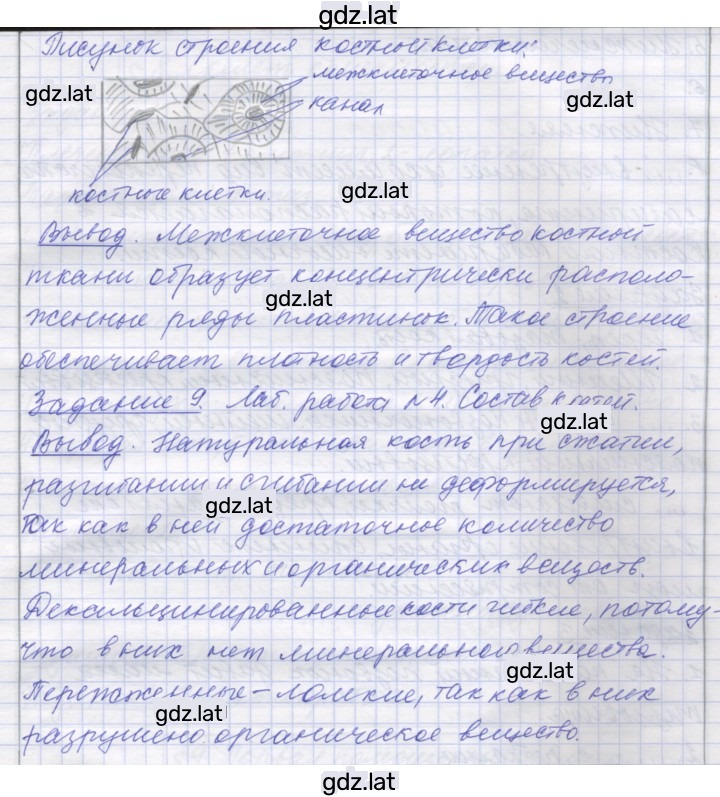 gdz.lat
Рисунок строения костной клетки:
межклеточное вещество
gdz.lat
gdz.lat
канал
костные клетки.
gdz.lat
Вывод. Межклеточное вещество костной
ткани образует концентрически располо-
gdz.lat
женные ряды пластинок. Такое строение
обеспечивает плотность и твердость костей.
Задание 9. Лаб. работа №4. Состав костей.
gdz.lat
Вывод. Натуральная кость при сжатии,
разгибании и сгибании не деформируется,
gdz.lat
так как в ней достаточное количество
минеральных и органических веществ.
Декальцинированные кости гибкие, потому-
что в них нет минерального вещества.
gdz.lat
Пережаженные - ломкие, так как в них
gdz.lat
разрушено органическое вещество.
gdz.lat